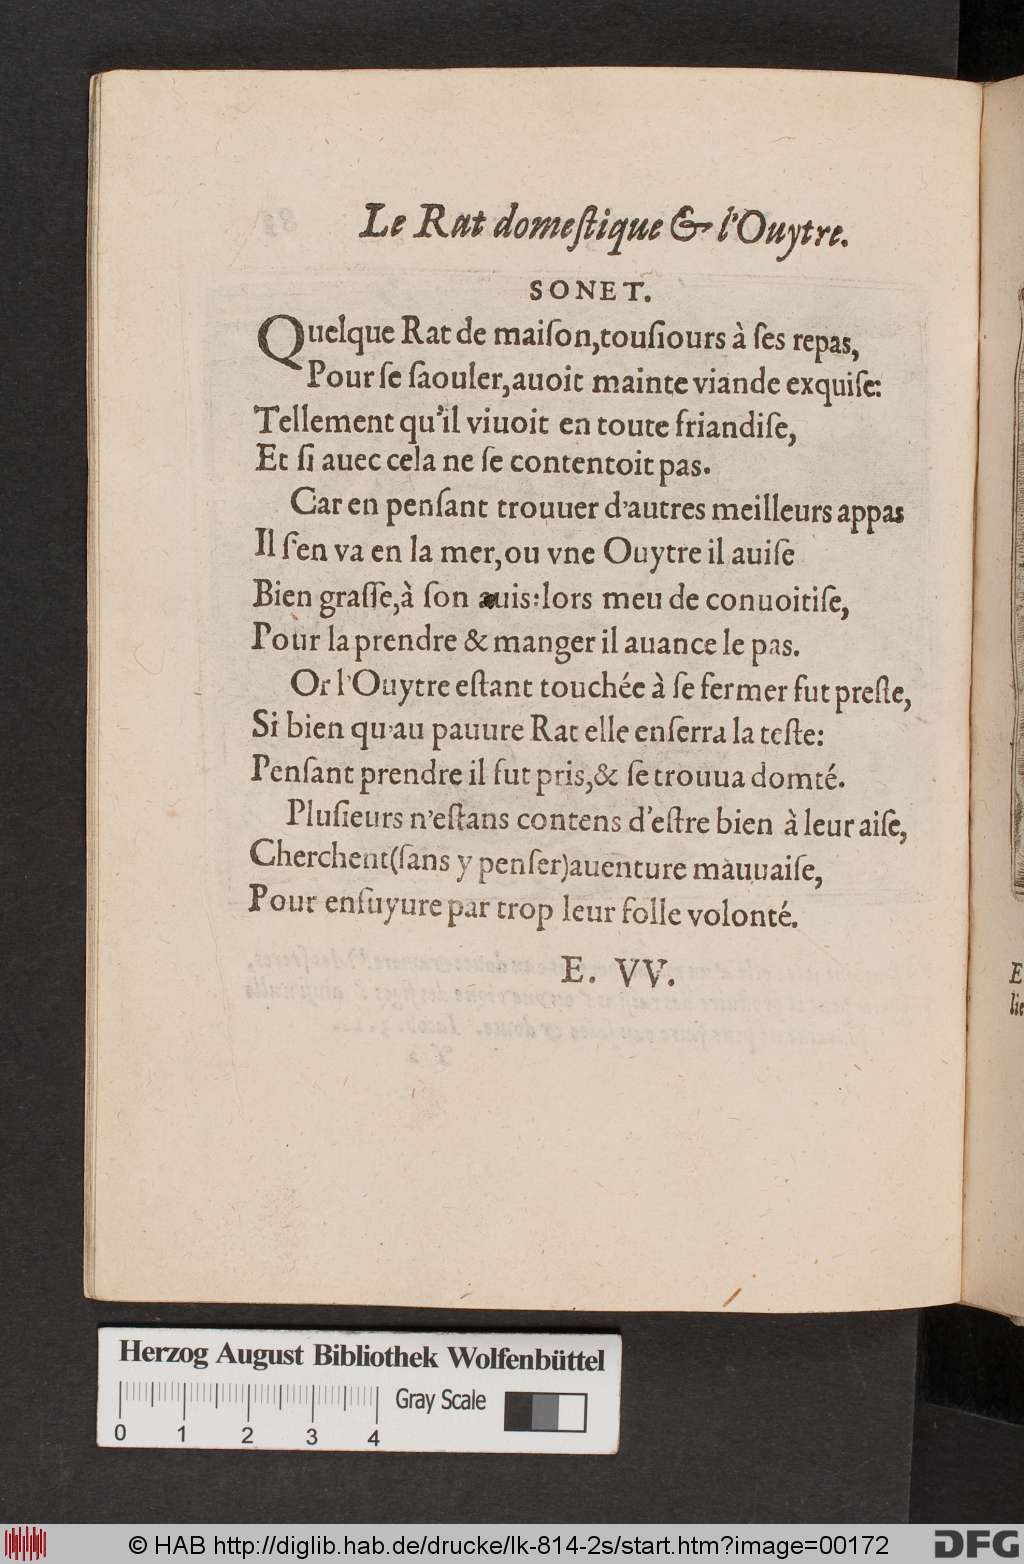 Le Rat domeſtique & l'Ouytre.
SONET.
Quelque Rat de maiſon,touſiours à ſes repas,
Pour ſe ſaouler,auoit mainte viande exquiſe:
Tellement qu'il viuoit en toute friandiſe,
Et ſi auec cela ne ſe contentoit pas.
Car en penſant trouuer d'autres meilleurs appas
Il ſ'en va en la mer,ou vne Ouytre il auiſe
Bien graſſe,à ſon auis:lors meu de conuoitiſe,
Pour la prendre & manger il auance le pas.
Or l'Ouytre eſtant touchée à ſe fermer fut preſte,
Si bien qu'au pauure Rat elle enſerra la teſte:
Penſant prendre il fut pris,& ſe trouua domté.
Pluſieurs n'eſtans contens d'eſtre bien à leur aiſe,
Cherchent(ſans y penſer)auenture mauuaiſe,
Pour enſuyure par trop leur folle volonté.
E. VV.
E
lie
Herzog August Bibliothek Wolfenbüttel
Gray Scale
0 1 2 3 4
© HAB http://diglib.hab.de/drucke/lk-814-2s/start.htm?image=00172
DFG